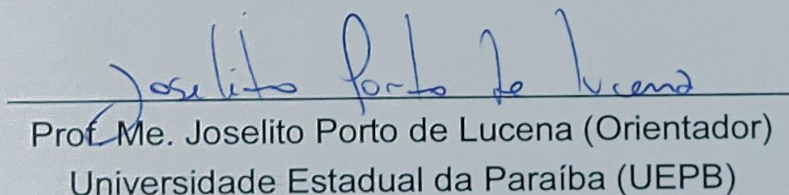 Joselito Porto de Lucena
Prof. Me. Joselito Porto de Lucena (Orientador)
Universidade Estadual da Paraíba (UEPB)